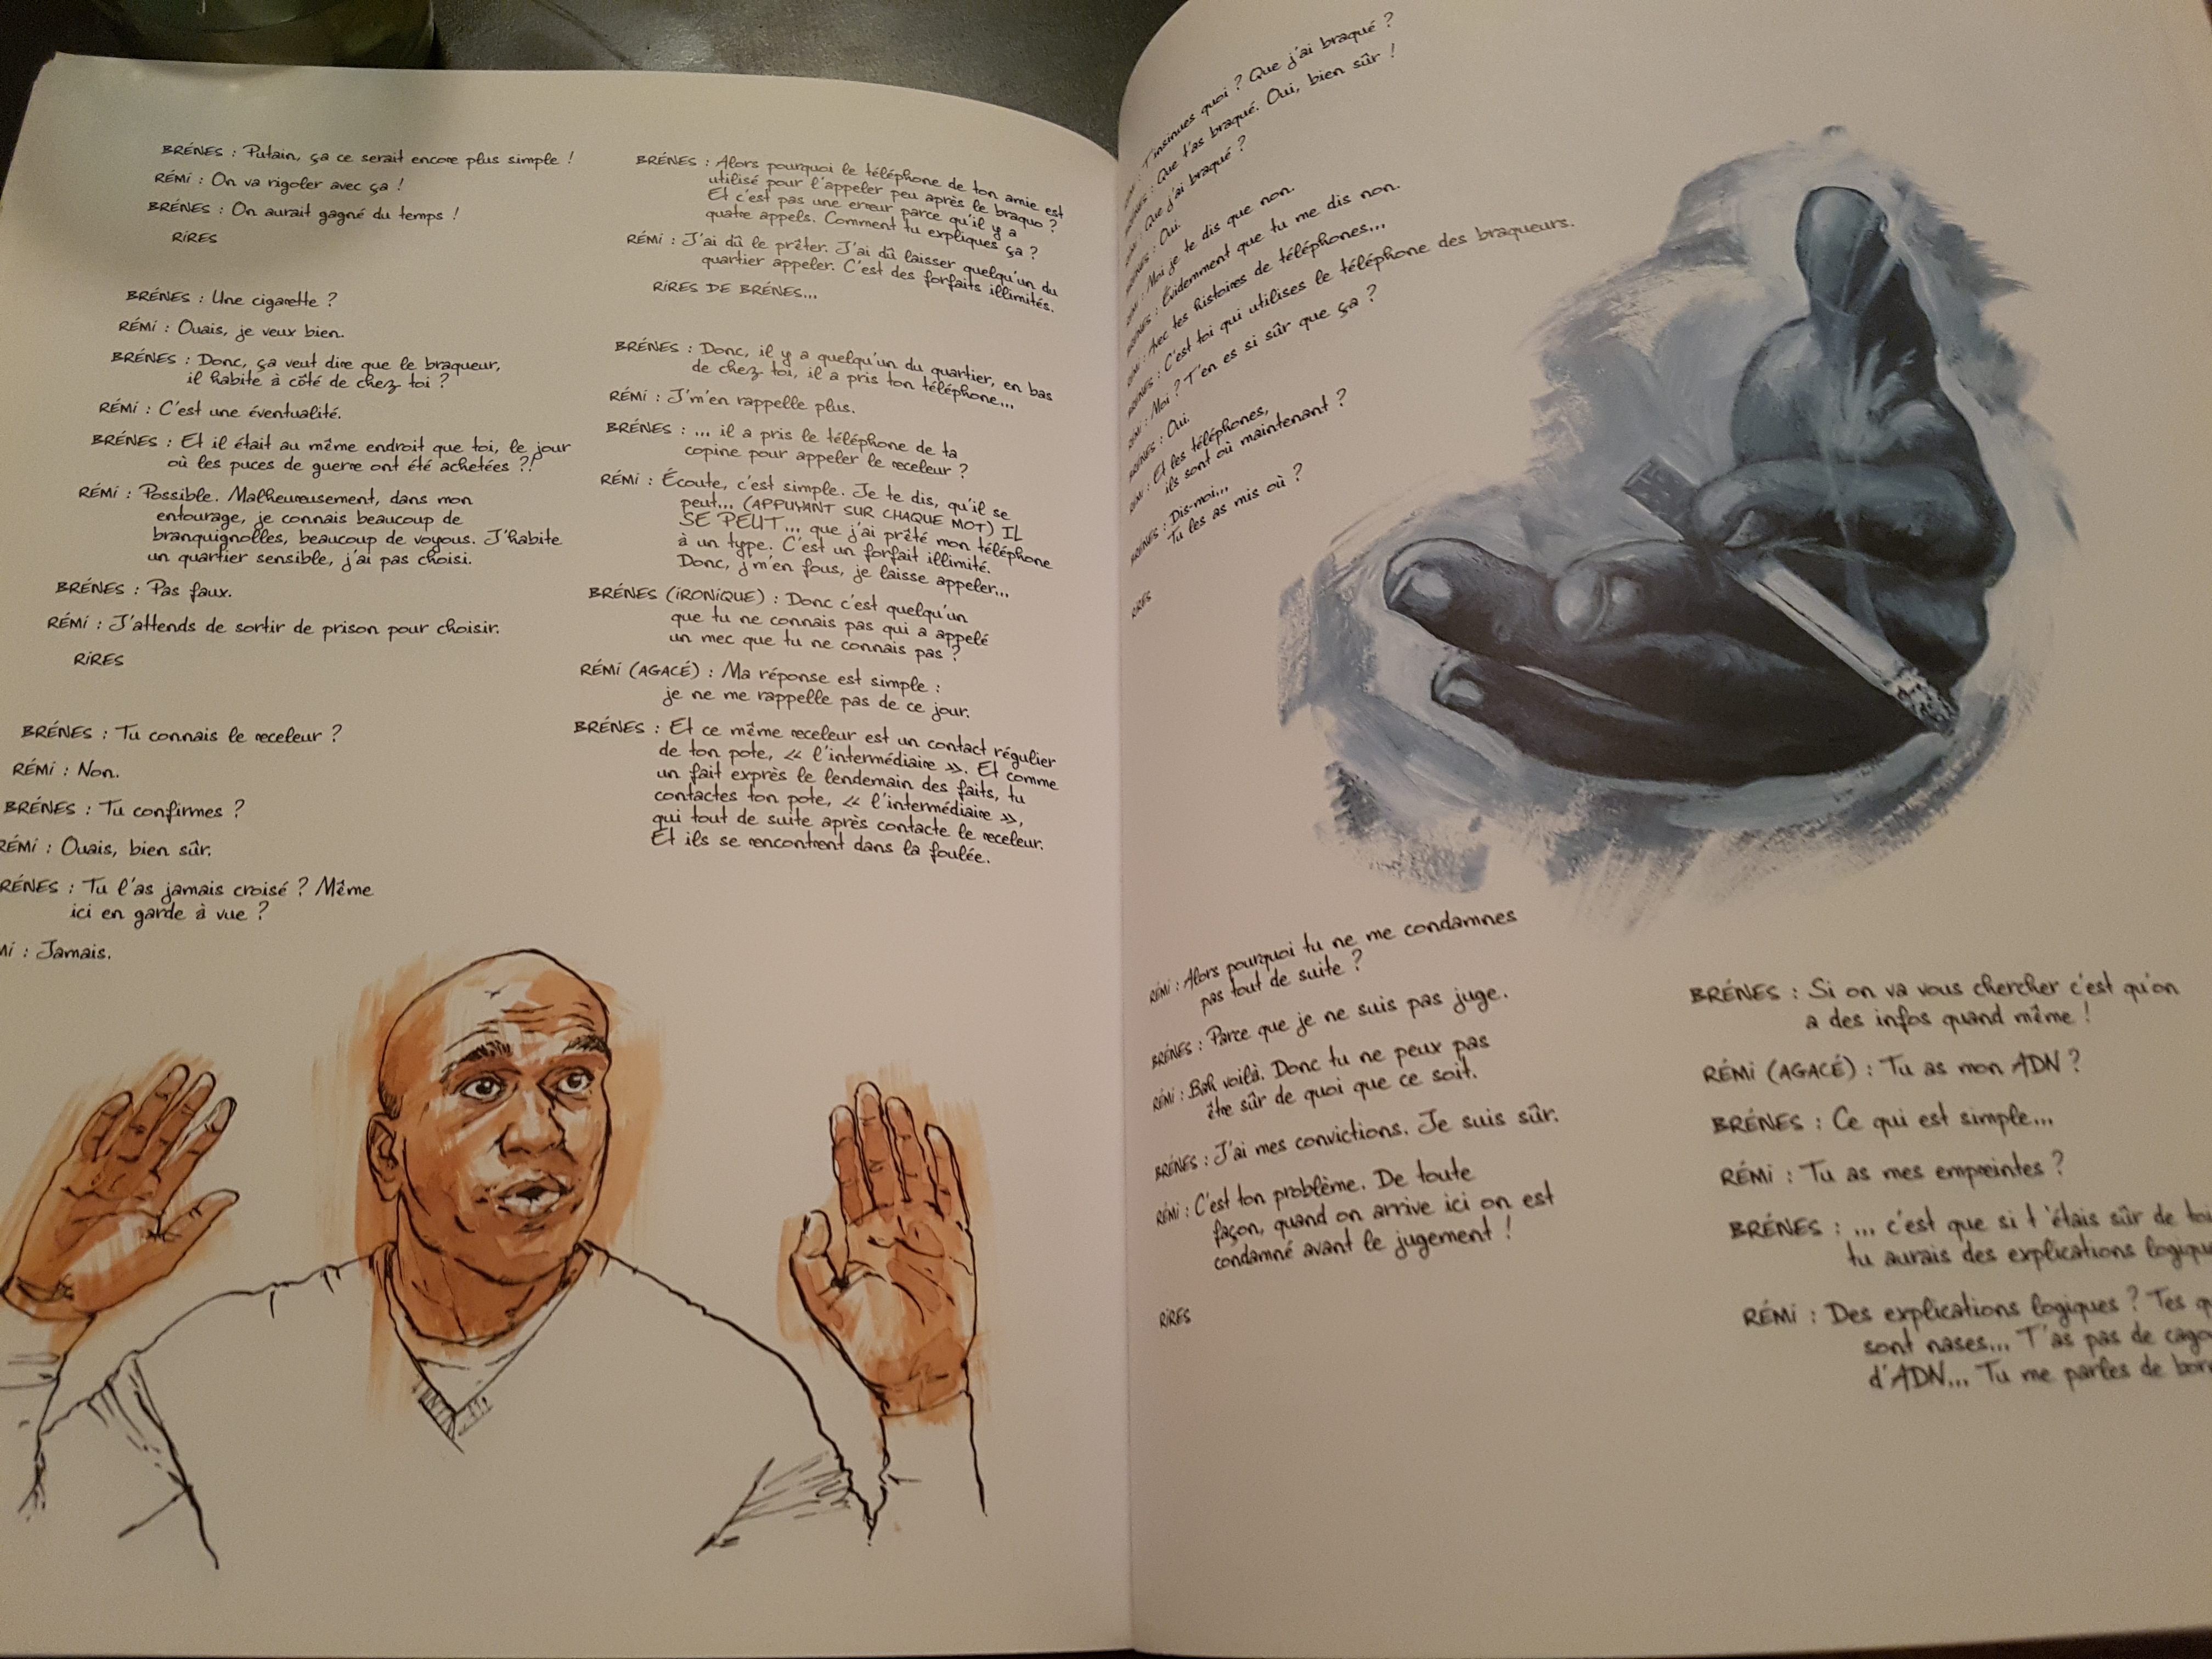 BRÉNES : Putain, ça ce serait encore plus simple !
RÉMI : On va rigoler avec ça !
BRÉNES : On aurait gagné du temps !
RIRES
BRÉNES : Une cigarette ?
RÉMI : Ouais, je veux bien.
BRÉNES : Donc, ça veut dire que le braqueur,
il habite à côté de chez toi ?
RÉMI : C'est une éventualité.
BRÉNES : Et il était au même endroit que toi, le jour
où les puces de guerre ont été achetées ?!
RÉMI : Possible. Malheureusement, dans mon
entourage, je connais beaucoup de
branquignolles, beaucoup de voyous. J'habite
un quartier sensible, j'ai pas choisi.
BRÉNES : Pas faux.
RÉMI : J'attends de sortir de prison pour choisir.
RIRES
BRÉNES : Tu connais le receleur ?
RÉMI : Non.
BRÉNES : Tu confirmes ?
RÉMI : Ouais, bien sûr.
RÉNES : Tu l'as jamais croisé ? Même
ici en garde à vue ?
MI : Jamais.
BRÉNES : Alors pourquoi le téléphone de ton amie est
utilisé pour l'appeler peu après le braquo ?
Et c'est pas une erreur parce qu'il y a
quatre appels. Comment tu expliques ça ?
RÉMI : J'ai dû le prêter. J'ai dû laisser quelqu'un du
quartier appeler. C'est des forfaits illimités.
RIRES DE BRÉNES...
BRÉNES : Donc, il y a quelqu'un du quartier, en bas
de chez toi, il a pris ton téléphone...
RÉMI : J'm'en rappelle plus.
BRÉNES : ... il a pris le téléphone de ta
copine pour appeler le receleur ?
RÉMI : Écoute, c'est simple. Je te dis, qu'il se
peut... (APPUYANT SUR CHAQUE MOT) IL
SE PEUT... que j'ai prêté mon téléphone
à un type. C'est un forfait illimité.
Donc, j'm'en fous, je laisse appeler...
BRÉNES (IRONIQUE) : Donc c'est quelqu'un
que tu ne connais pas qui a appelé
un mec que tu ne connais pas ?
RÉMI (AGACÉ) : Ma réponse est simple :
je ne me rappelle pas de ce jour.
BRÉNES : Et ce même receleur est un contact régulier
de ton pote, « l'intermédiaire ». Et comme
un fait exprès le lendemain des faits, tu
contactes ton pote, « l'intermédiaire »,
qui tout de suite après contacte le receleur.
Et ils se rencontrent dans la foulée.
RÉMI : T'insinues quoi ? Que j'ai braqué ?
BRÉNES : Que t'as braqué. Oui, bien sûr !
RÉMI : Que j'ai braqué ?
BRÉNES : Oui.
RÉMI : Moi je te dis que non.
BRÉNES : Évidemment que tu me dis non.
RÉMI : Avec tes histoires de téléphones...
BRÉNES : C'est toi qui utilises le téléphone des braqueurs.
RÉMI : Moi ? T'en es si sûr que ça ?
BRÉNES : Oui.
RÉMI : Et les téléphones,
ils sont où maintenant ?
BRÉNES : Dis-moi...
Tu les as mis où ?
RIRES
RÉMI : Alors pourquoi tu ne me condamnes
pas tout de suite ?
BRÉNES : Parce que je ne suis pas juge.
RÉMI : Bah voilà. Donc tu ne peux pas
être sûr de quoi que ce soit.
BRÉNES : J'ai mes convictions. Je suis sûr.
RÉMI : C'est ton problème. De toute
façon, quand on arrive ici on est
condamné avant le jugement !
RIRES
BRÉNES : Si on va vous chercher c'est qu'on
a des infos quand même !
RÉMI (AGACÉ) : Tu as mon ADN ?
BRÉNES : Ce qui est simple...
RÉMI : Tu as mes empreintes ?
BRÉNES : ... c'est que si t'étais sûr de toi
tu aurais des explications logiqu
RÉMI : Des explications logiques ? Tes q
sont nases... T'as pas de cago
d'ADN... Tu me parles de bor